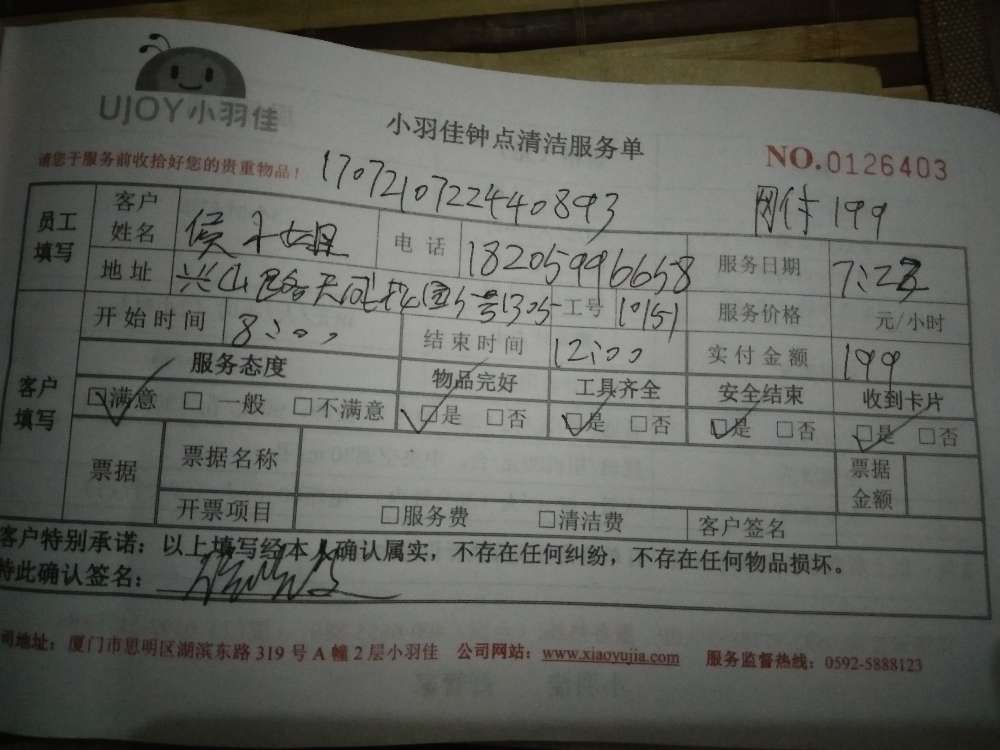 UJOY小羽佳
小羽佳钟点清洁服务单
NO.0126403
请您于服务前收拾好您的贵重物品！
170721072244040893
网付 199
员工填写 客户姓名 侯 电话 18205996658 服务日期 7:23
地址 兴山路 5号1305 工号 10151 服务价格 元/小时
开始时间 8:00 结束时间 12:00 实付金额 199
客户填写 服务态度 物品完好 工具齐全 安全结束 收到卡片
☑满意 □一般 □不满意 ☑是 □否 ☑是 □否 ☑是 □否 ☑是 □否
票据 票据名称 票据金额
开票项目 □服务费 □清洁费 客户签名
客户特别承诺：以上填写经本人确认属实，不存在任何纠纷，不存在任何物品损坏。
特此确认签名：
司地址：厦门市思明区湖滨东路 319 号 A 幢 2 层小羽佳 公司网站：www.xiaoyujia.com 服务监督热线：0592-5888123